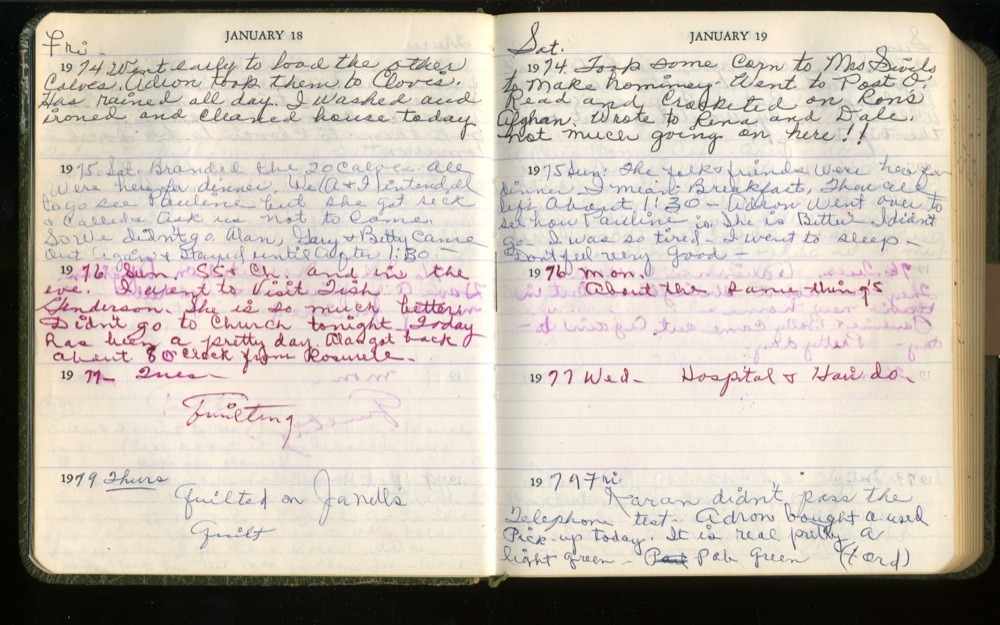 JANUARY 18
Fri -
1974 Went early to load the other
Calves. Adron took them to Clovis.
Has rained all day. I washed and
ironed and cleaned house today
1975. Sat. Branded the 20 Calves - All
were here for dinner. We A & I intended
to go see Pauline but she got sick
& Called & ask us not to Come.
So We didn't go. Alan, Gary & Betty Came
out again & stayed until after 1:30. -
1976. Sun SS & Ch. and in the
eve. I went to Visit Tish
Henderson. She is so much better
Didn't go to Church tonight. Today
has been a pretty day. Dad got back
about 8 o'clock from Roswell.
1977 - Tues -
Quilting
1979 Thurs
Quilted on Janells
Quilt
JANUARY 19
Sat.
1974. Took some Corn to Mrs
to Make hominey. Went to Post O.
Read and Crocheted on Ron's
Afghan. Wrote to Rena and Dale.
not much going on here!!
1975 Sun: The folks & friends were here for
dinner I mean Breakfast, They all
left About 1:30 - Adron Went over to
see how Pauline is. She is Better I didn't
go - I was so tired - I went to sleep -
Don't feel very good -
1976 Mon.
About the same thing's
1977 Wed - Hospital & Hair do.
1979 Fri
Karan didn't pass the
Telephone test. Adron bought a used
Pick-up today. It is real pretty a
light green - Pale Green (Ford)